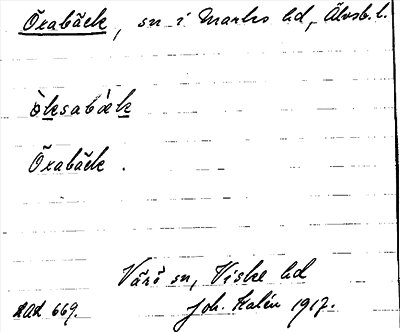 Öxabäck, sn i Marks hd, Älvsb. l.
òksabàk
Öxabäck.
Värö sn, Viske hd
AAd 669.
Joh. Kalén 1917.